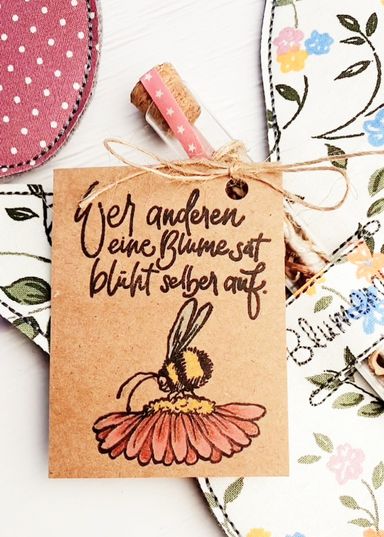 Wer anderen
eine Blume sät
blüht selber auf.
Blumen